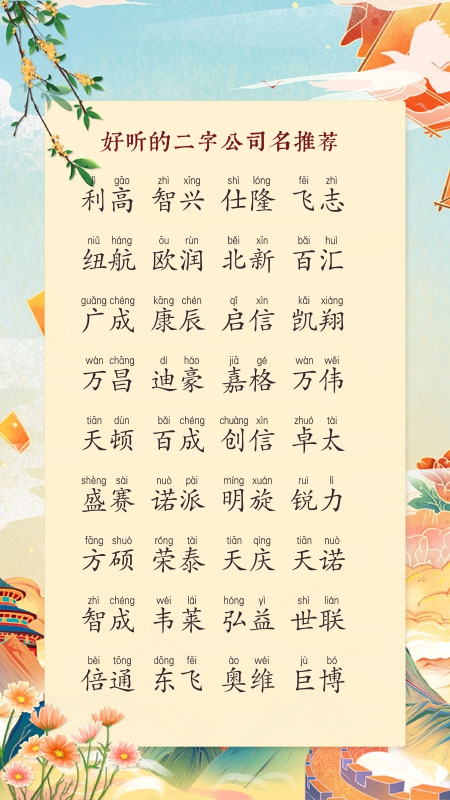 好听的二字公司名推荐
lì gāo zhì xīng shì lóng fēi zhì
利高 智兴 仕隆 飞志
niǔ háng ōu rùn běi xīn bǎi huì
纽航 欧润 北新 百汇
guǎng chéng kāng chén qǐ xìn kǎi xiáng
广成 康辰 启信 凯翔
wàn chāng dí háo jiā gé wàn wěi
万昌 迪豪 嘉格 万伟
tiān dùn bǎi chéng chuàng xìn zhuó tài
天顿 百成 创信 卓太
shèng sài nuò pài míng xuán ruì lì
盛赛 诺派 明旋 锐力
fāng shuò róng tài tiān qìng tiān nuò
方硕 荣泰 天庆 天诺
zhì chéng wéi lái hóng yì shì lián
智成 韦莱 弘益 世联
bèi tōng dōng fēi ào wéi jù bó
倍通 东飞 奥维 巨博